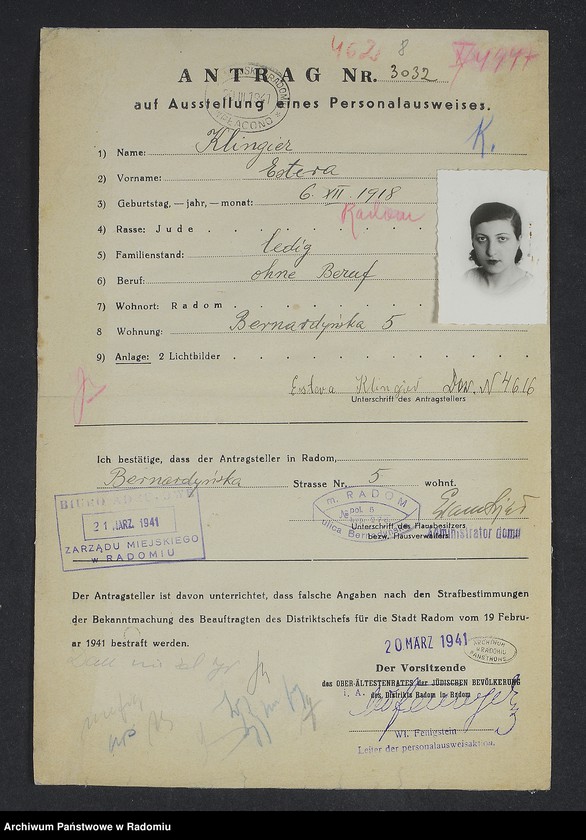 462 8
ANTRAG NR. 3032
auf Ausstellung eines Personalausweises.
K.
1) Name: Klingier
2) Vorname: Estera
3) Geburtstag, — jahr, — monat: 6. XII. 1918
Radom
4) Rasse: Jude
5) Familienstand: ledig
6) Beruf: ohne Beruf
7) Wohnort: Radom
8 Wohnung: Bernardyńska 5
9) Anlage: 2 Lichtbilder
Estera Klingier Dow. N 4616
Unterschrift des Antragstellers
Ich bestätige, dass der Antragsteller in Radom,
Bernardyńska Strasse Nr. 5 wohnt.
m. RADOM
ulica
Unterschrift des Hausbesitzers
bezw. Hausverwalters
administrator domu
21 MARZ 1941
ZARZĄDU MIEJSKIEGO
w RADOMIU
Der Antragsteller ist davon unterrichtet, dass falsche Angaben nach den Strafbestimmungen
der Bekanntmachung des Beauftragten des Distriktschefs für die Stadt Radom vom 19 Febru-
ar 1941 bestraft werden.
20 MÄRZ 1941
ARCHIWUM
PAŃSTWOWE
Der Vorsitzende
das OBER-ÄLTESTENRATES der JÜDISCHEN BEVÖLKERUNG
i. A. des Distrikts Radom in Radom
Wł. Fenigstein
Leiter der personalausweisaktion.
Archiwum Państwowe w Radomiu